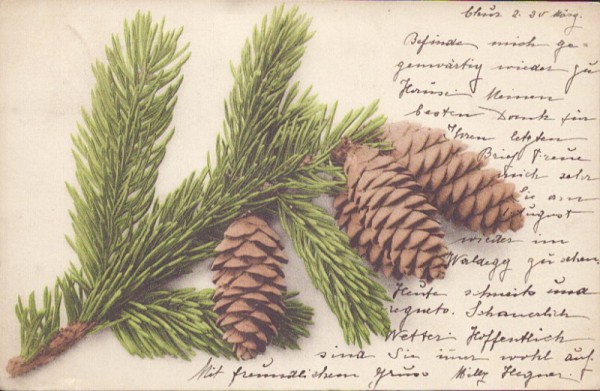 Chur d. 30 März.
Befinde mich ge-
genwärtig wieder zu
Hause. Meinen
besten Dank für
Ihren letzten
Brief. Freue
mich sehr
Sie am
August
wieder im
Waldegg zu sehen.
Heute schneits und
regnets. Schauerlich
Wetter. Hoffentlich
sind Sie immer wohl auf.
Mit freundlichem Gruss